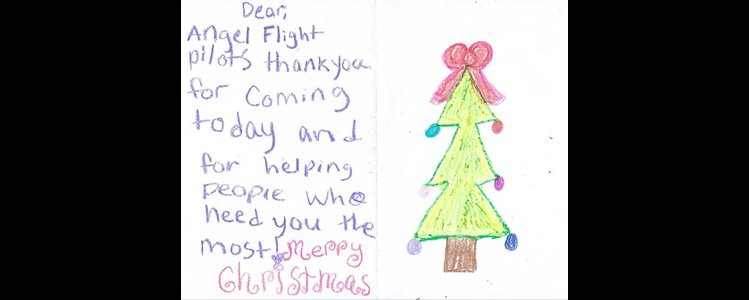 Dear,
Angel Flight
pilots thankyou
for Coming
today and
for helping
people who
need you the
most! Merry
Christmas